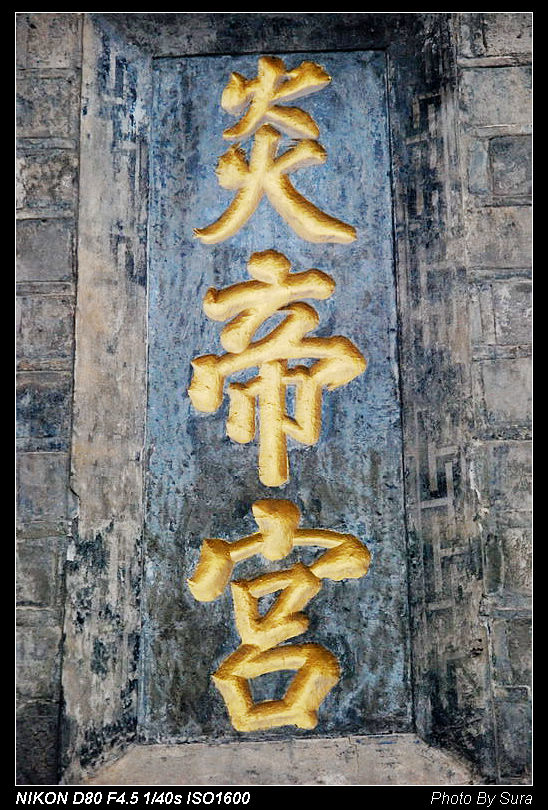 炎帝宫
NIKON D80 F4.5 1/40s ISO1600
Photo By Sura